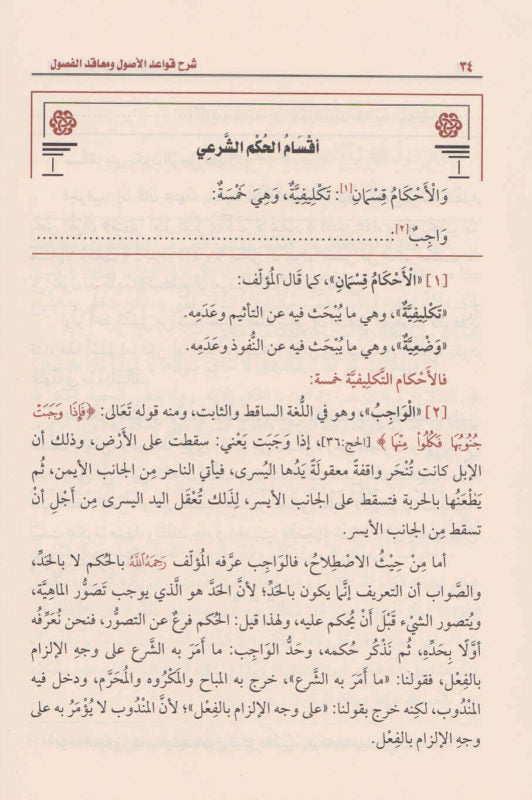 ٣٤
شرح قواعد الأصول ومعاقد الفصول
أقْسَامُ الحُكْمِ الشَّرعِي
وَالْأَحْكَامُ قِسْمَانِ[١]: تَكْلِيفِيَّةٌ، وَهِيَ خَمْسَةٌ:
وَاجِبٌ[٢]:
[١] «الْأَحْكَامُ قِسْمَانِ»، كما قَال المُؤلّف:
«تَكْلِيفِيَّةٌ»، وهي ما يُبْحَث فيه عن التأثيم وعَدَمِه.
«وَضْعِيَّةٌ»، وهي ما يُبْحَث فيه عن النُّفوذ وعَدَمِه.
فالأَحْكام التَّكليفيَّة خمسة:
[٢] «الْوَاجِبُ»، وهو في اللُّغة الساقط والثابت، ومنه قوله تَعَالى: ﴿فَإِذَا وَجَبَتْ
جُنُوبُهَا فَكُلُواْ مِنْهَا﴾ [الحج:٣٦]، إذا وَجَبَت يَعْني: سقطت على الأَرْض، وذلك أن
الإبل كانت تُنْحَر واقفةً معقولةً يَدُها اليُسرى، فيأتي الناحر مِن الجانب الأيمن، ثُم
يَطْعَنُها بالحربة فتسقط على الجانب الأيسر، لِذَلك تُعْقَل اليد اليسرى مِن أَجْلِ أنْ
تسقط مِن الجانب الأيسر.
أما مِنْ حيْثُ الاصْطِلاحُ، فالوَاجِب عرَّفه المُؤلّف رَحِمَهُ اللَّهُ بالحُكم لا بالحَدِّ،
والصَّواب أن التعريف إنَّما يكون بالحَدِّ؛ لأنَّ الحَدَّ هو الَّذي يوجب تَصَوُّر الماهِيَّة،
ويُتصور الشيْء قَبْلَ أَنْ يُحكم عليه، ولهذا قيل: الحُكم فرعٌ عن التصوُّر، فنحن نُعَرِّفُه
أوَّلًا بِحَدِّهِ، ثُم نَذْكُر حُكمه، وحَدُّ الوَاجِب: ما أمَرَ به الشَّرع على وجهِ الإلزام
بالفِعْل، فقولنا: «ما أمَرَ به الشَّرع»، خرج به المباح والمَكْرُوه والمُحَرَّم، ودخل فيه
المَنْدُوب، لكِنه خرج بقولنا: «على وجه الإلزام بالفِعْل»؛ لأنَّ المَنْدُوب لا يُؤْمَرُ به على
وجهِ الإلزام بالفِعْل.